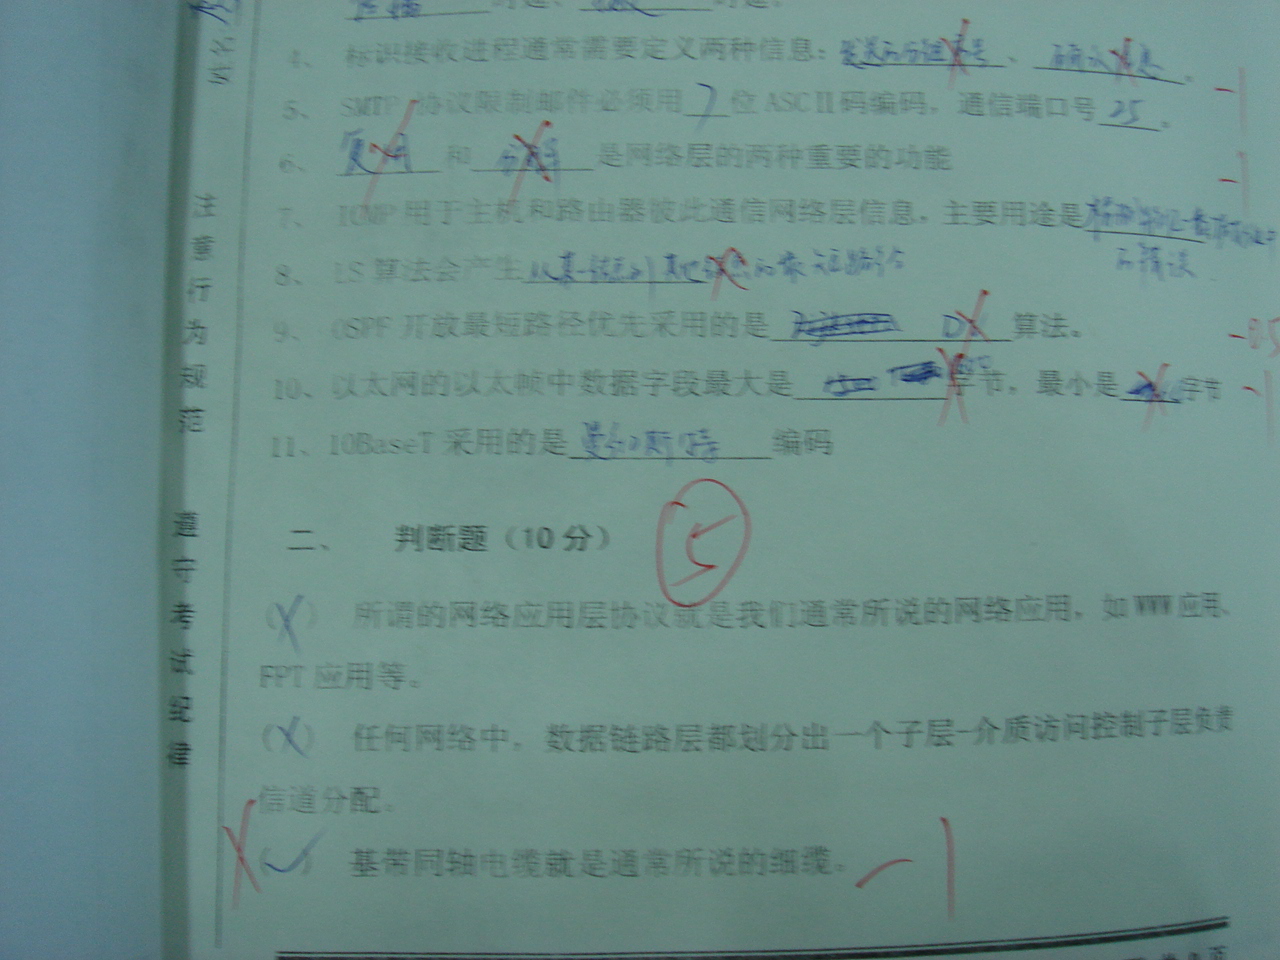 姓名
4、 标识接收进程通常需要定义两种信息：发送的分组序号、确认信息。
-1
5、 SMTP 协议限制邮件必须用7位ASCII码编码，通信端口号25。
6、 复用和分解是网络层的两种重要的功能
-1
7、 ICMP 用于主机和路由器彼此通信网络层信息，主要用途是
的错误
8、 LS 算法会产生从某一结点到其他结点的最短路径
9、 OSPF 开放最短路径优先采用的是 DX 算法。
-0.5
10、以太网的以太帧中数据字段最大是字节，最小是字节
-1
11、10BaseT 采用的是曼彻斯特编码
5
二、 判断题（10分）
（X） 所谓的网络应用层协议就是我们通常所说的网络应用，如 WWW 应用、
FPT 应用等。
（X） 任何网络中，数据链路层都划分出一个子层-介质访问控制子层负责
信道分配。
X（✓） 基带同轴电缆就是通常所说的细缆。 -1
注意行为规范 遵守考试纪律